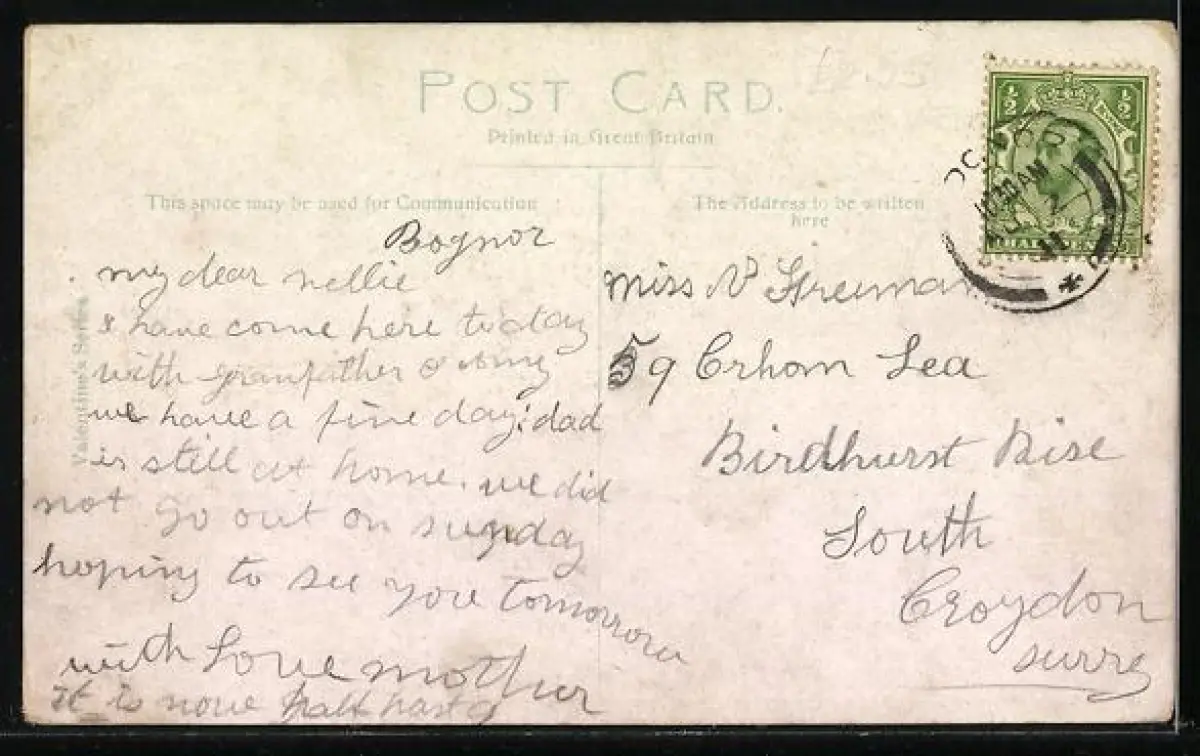 POST CARD.
Printed in Great Britain
This space may be used for Communication
The Address to be written
here
Valentine's Series
½ ½
HALF PENNY
10 30 AM
Bognor
my dear nellie
I have come here today
with granfather & Amy
we have a fine day: dad
is still at home. we did
not go out on sunday
hoping to see you tomorrow
with Love mother
it is now half past 9
miss N Freeman
59 Crham Lea
Birdhurst Rise
South
Croydon
surre